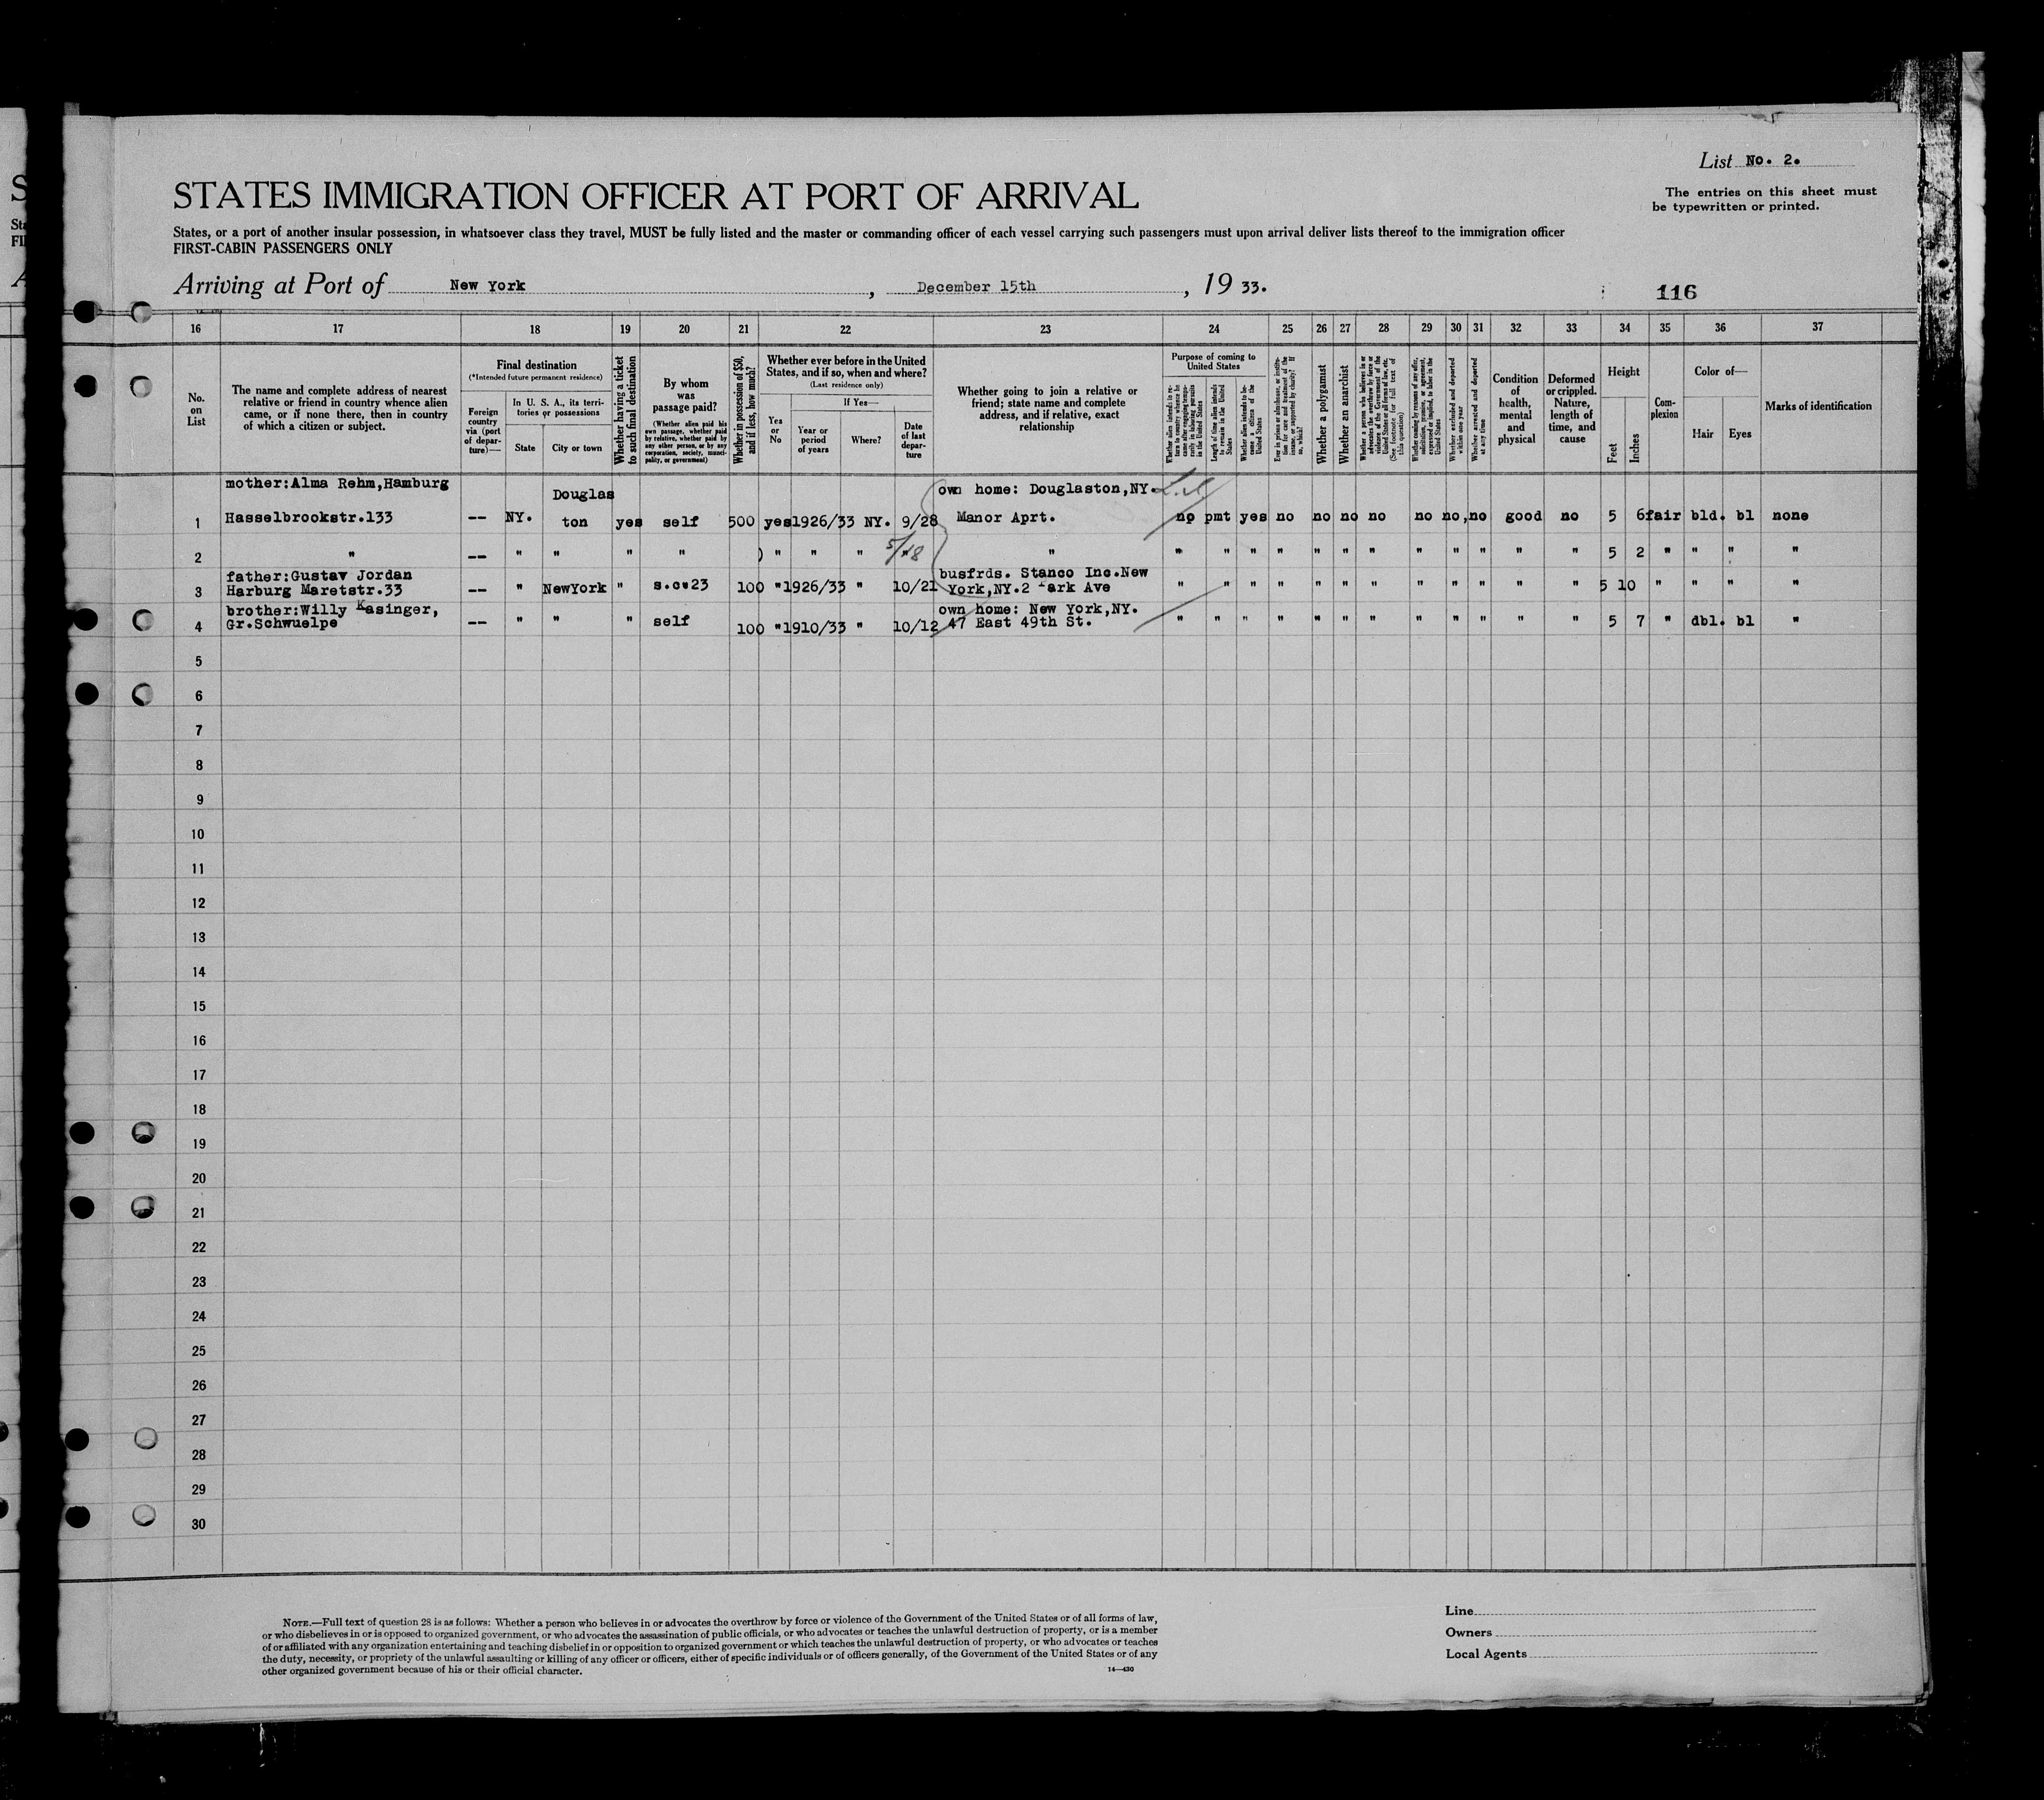 List No. 2.
STATES IMMIGRATION OFFICER AT PORT OF ARRIVAL
The entries on this sheet must
be typewritten or printed.
States, or a port of another insular possession, in whatsoever class they travel, MUST be fully listed and the master or commanding officer of each vessel carrying such passengers must upon arrival deliver lists thereof to the immigration officer
FIRST-CABIN PASSENGERS ONLY
Arriving at Port of New York, December 15th, 19 33.
116
16 17 18 19 20 21 22 23 24 25 26 27 28 29 30 31 32 33 34 35 36 37
No.
on
List
The name and complete address of nearest
relative or friend in country whence alien
came, or if none there, then in country
of which a citizen or subject.
Final destination
(*Intended future permanent residence)
Foreign
country
via (port
of depar-
ture)—
In U. S. A., its terri-
tories or possessions
State
City or town
Whether having a ticket
to such final destination
By whom
was
passage paid?
(Whether alien paid his
own passage, whether paid
by relative, whether paid by
any other person, or by any
corporation, society, munici-
pality, or government)
Whether in possession of $50,
and if less, how much?
Whether ever before in the United
States, and if so, when and where?
(Last residence only)
Yes
or
No
If Yes—
Year or
period
of years
Where?
Date
of last
depar-
ture
Whether going to join a relative or
friend; state name and complete
address, and if relative, exact
relationship
Purpose of coming to
United States
Whether alien intends to re-
turn to country whence he
came after engaging tempo-
rarily in laboring pursuits
in the United States
Length of time alien intends
to remain in the United
States
Whether alien intends to be-
come a citizen of the
United States
Ever in prison or almshouse, or institu-
tion for care and treatment of the
insane, or supported by charity? If
so, which?
Whether a polygamist
Whether an anarchist
Whether a person who believes in or
advocates the overthrow by force or
violence of the Government of the
United States or all forms of law, etc.
(See footnote for full text of
this question)
Whether coming by reason of any offer,
solicitation, promise, or agreement,
expressed or implied, to labor in the
United States
Whether excluded and deported
within one year
Whether arrested and deported
at any time
Condition
of
health,
mental
and
physical
Deformed
or crippled.
Nature,
length of
time, and
cause
Height
Feet
Inches
Com-
plexion
Color of—
Hair
Eyes
Marks of identification
mother:Alma Rehm,Hamburg Douglas own home: Douglaston,NY.
1 Hasselbrookstr.133 -- NY. ton yes self 500 yes 1926/33 NY. 9/28 Manor Aprt. no pmt yes no no no no no no,no good no 5 6 fair bld. bl none
2 " -- " " " " ) " " " 5/18 " " " " " " " " " " " " " 5 2 " " " "
father:Gustav Jordan busfrds. Stanco Inc.New
3 Harburg Maretstr.33 -- " NewYork " s.o.23 100 " 1926/33 " 10/21 York,NY.2 Park Ave " " " " " " " " " " " " 5 10 " " " "
brother:Willy Kasinger, own home: New York,NY.
4 Gr.Schwuelpe -- " " " self 100 " 1910/33 " 10/12 47 East 49th St. " " " " " " " " " " " " 5 7 " dbl. bl "
5
6
7
8
9
10
11
12
13
14
15
16
17
18
19
20
21
22
23
24
25
26
27
28
29
30
NOTE.—Full text of question 28 is as follows: Whether a person who believes in or advocates the overthrow by force or violence of the Government of the United States or of all forms of law,
or who disbelieves in or is opposed to organized government, or who advocates the assassination of public officials, or who advocates or teaches the unlawful destruction of property, or is a member
of or affiliated with any organization entertaining and teaching disbelief in or opposition to organized government or which teaches the unlawful destruction of property, or who advocates or teaches
the duty, necessity, or propriety of the unlawful assaulting or killing of any officer or officers, either of specific individuals or of officers generally, of the Government of the United States or of any
other organized government because of his or their official character.
14—430
Line
Owners
Local Agents